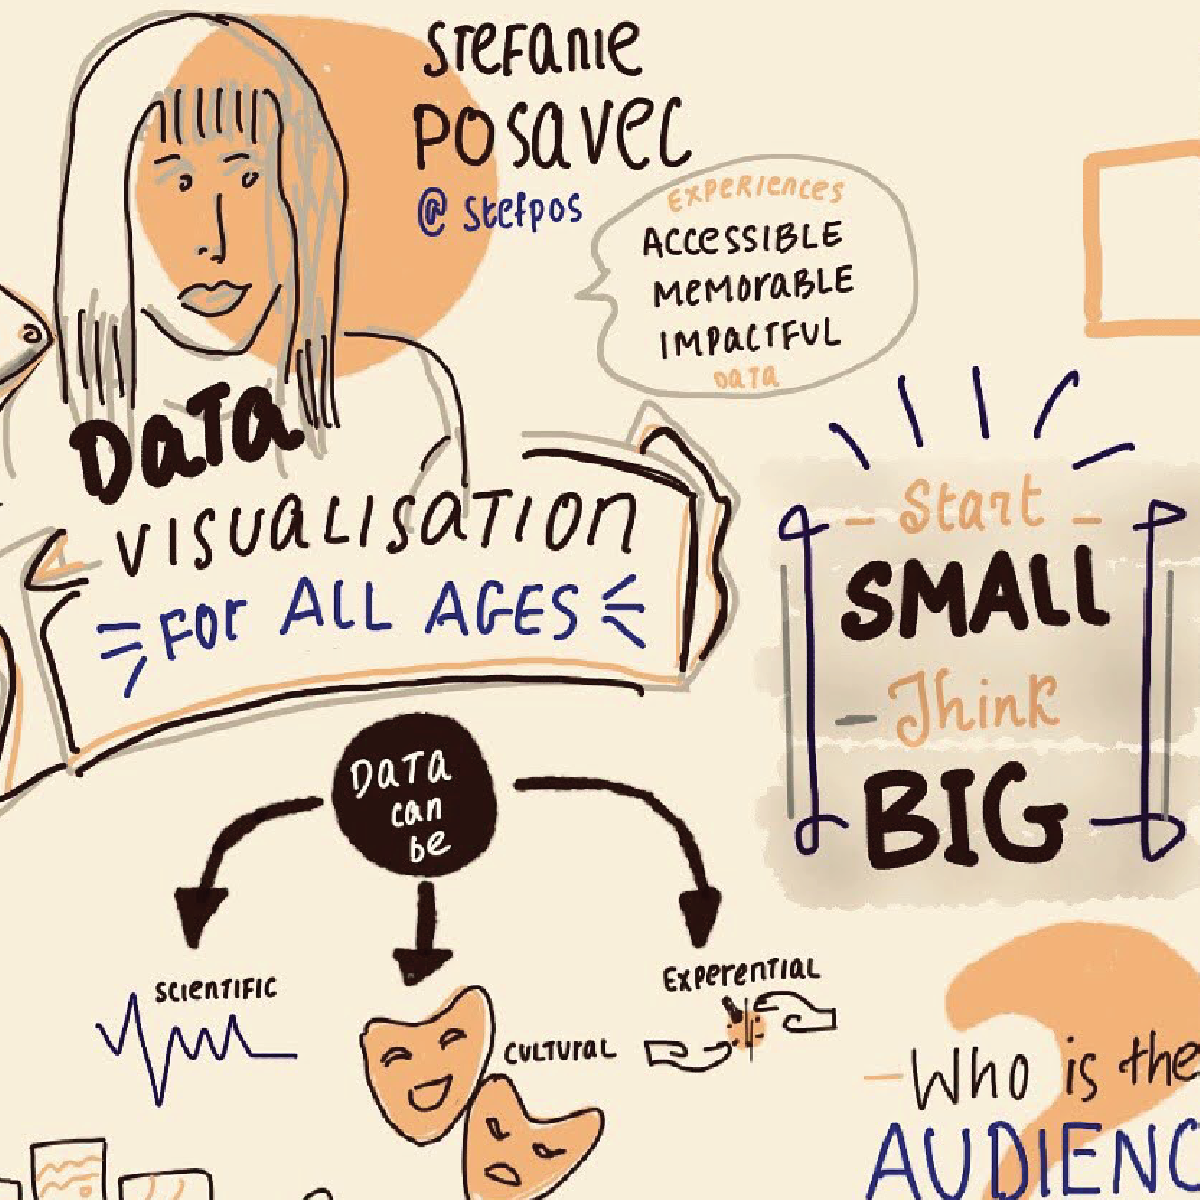 STEFANIE
POSAVEC
@ stefpos
EXPERIENCES
ACCESSIBLE
MEMORABLE
IMPACTFUL
DATA
DATA
VISUALISATION
FOR ALL AGES
Start
SMALL
Think
BIG
DATA
can
be
SCIENTIFIC
CULTURAL
EXPERENTIAL
Who is the
AUDIENC